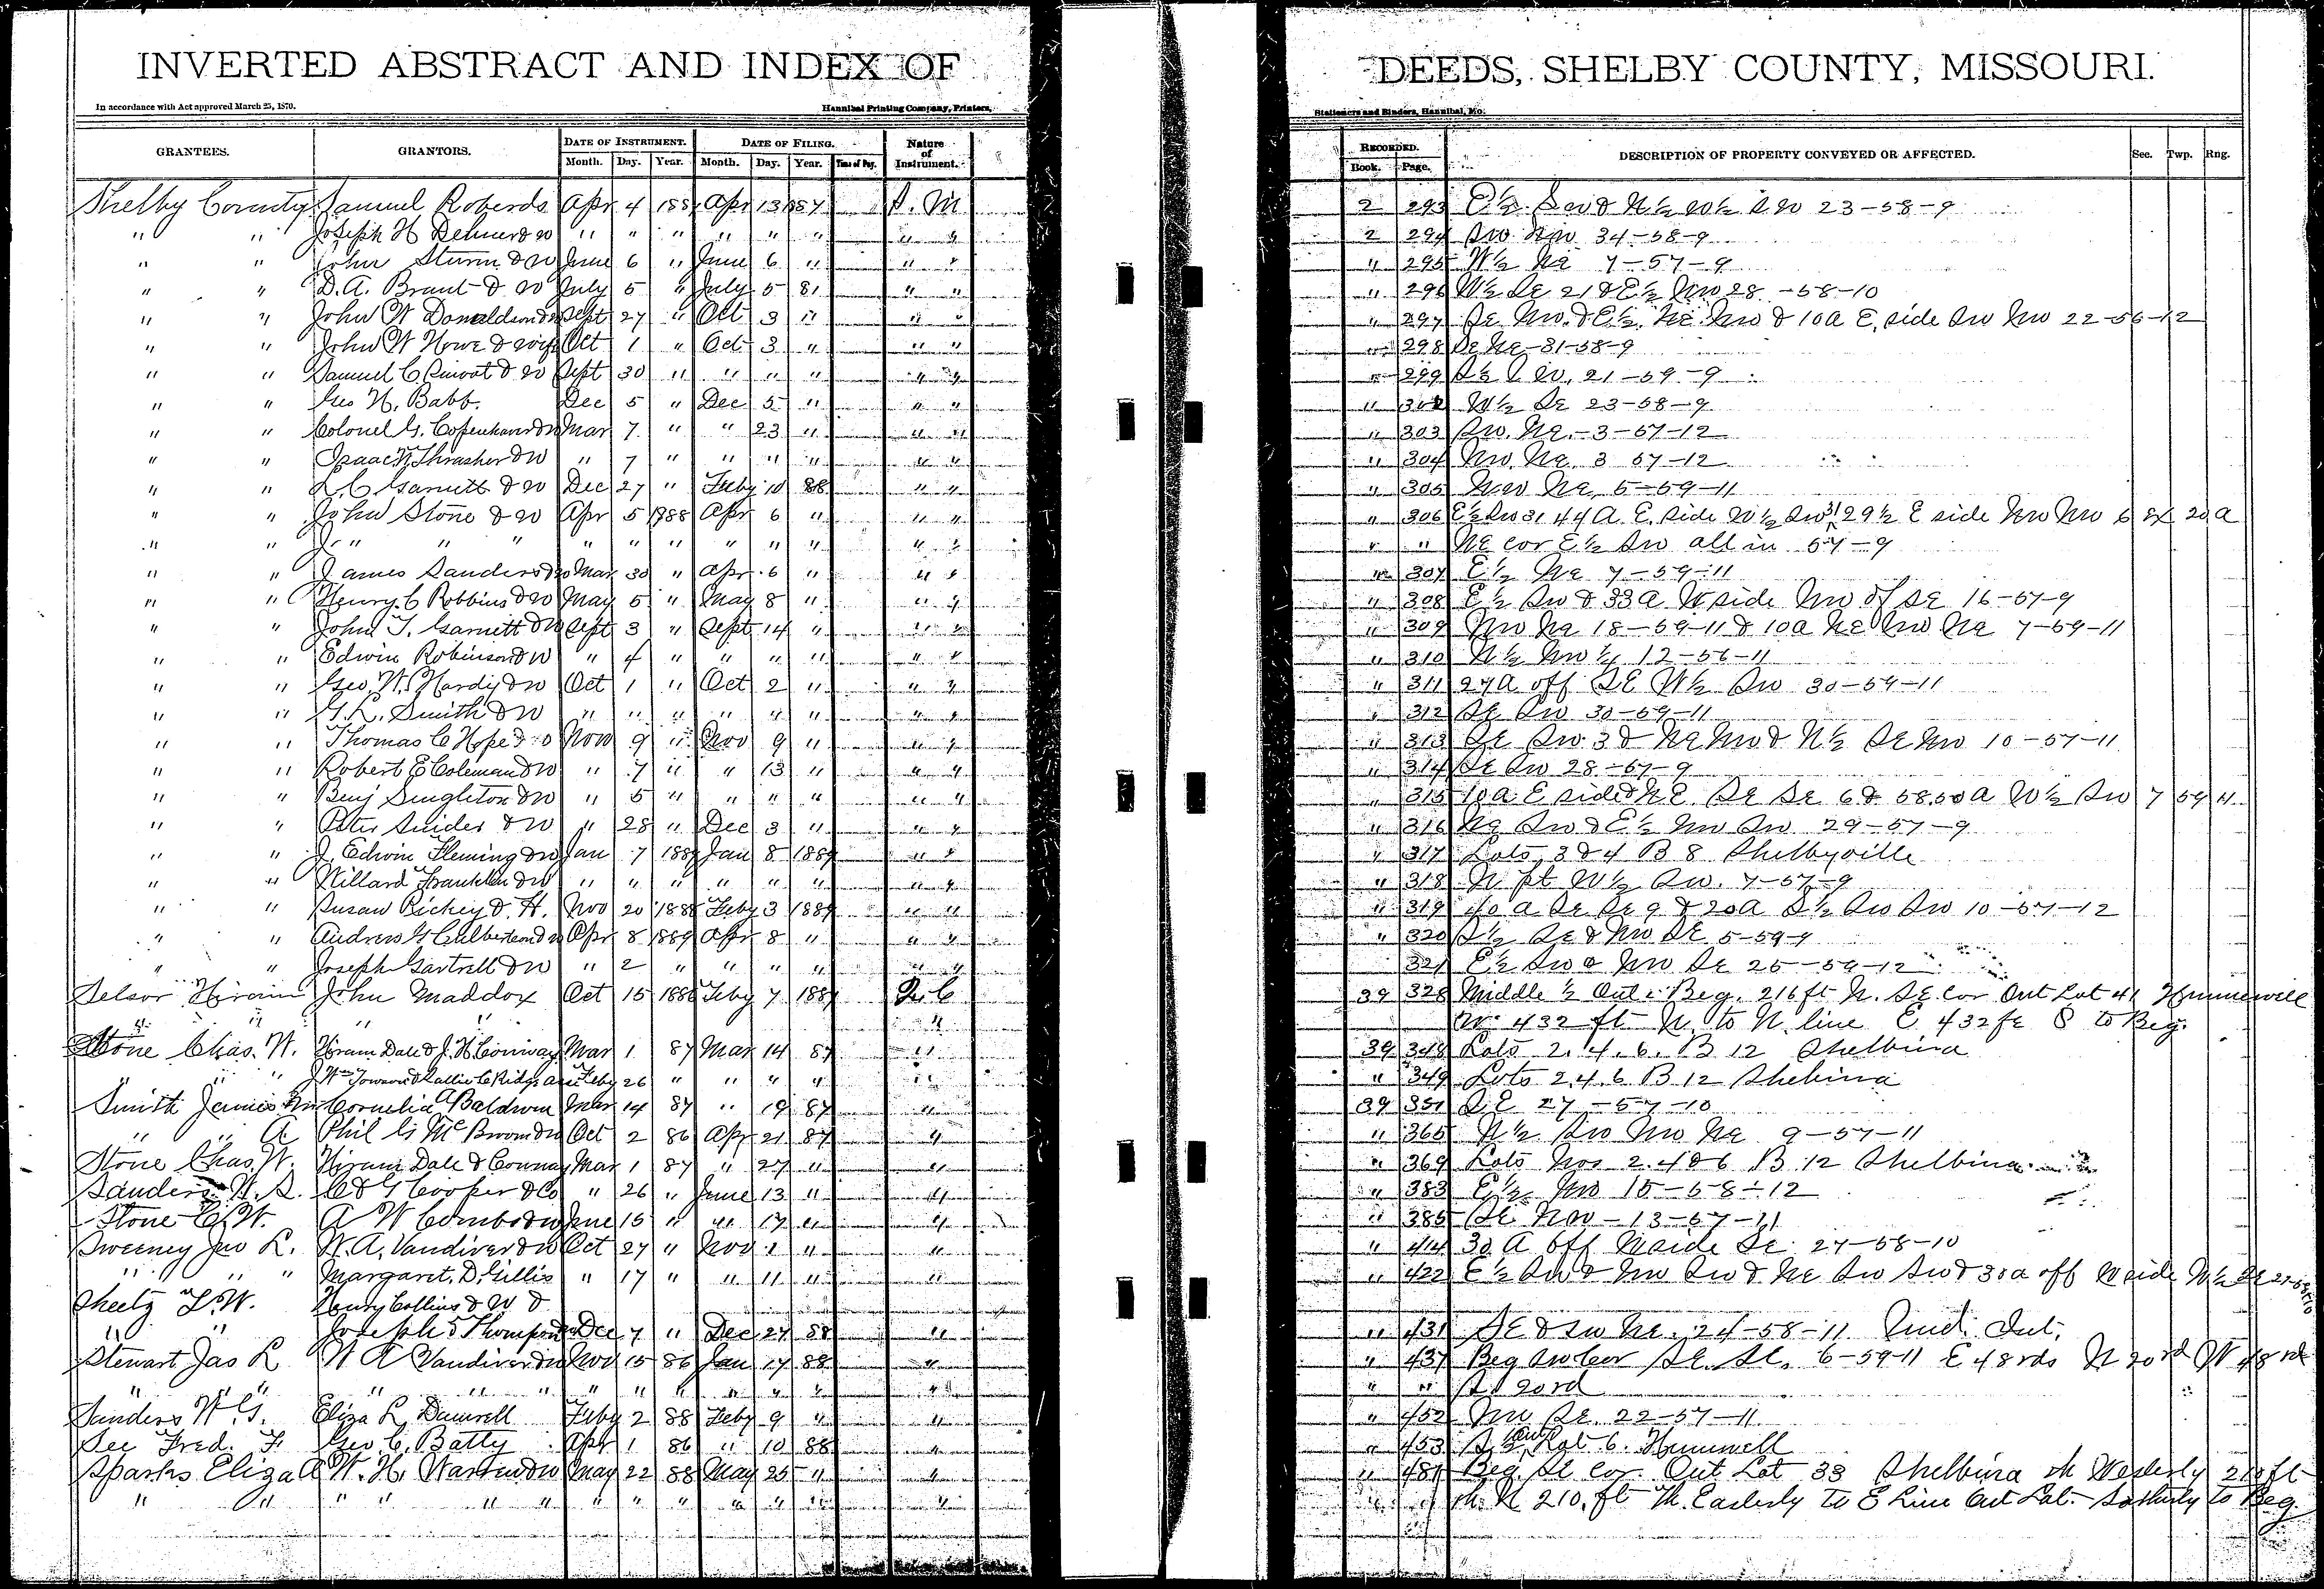 INVERTED ABSTRACT AND INDEX OF DEEDS, SHELBY COUNTY, MISSOURI.
In accordance with Act approved March 25, 1870. Hannibal Printing Company, Printers, Stationers and Binders, Hannibal, Mo.
GRANTEES. GRANTORS. DATE OF INSTRUMENT. DATE OF FILING. Nature of Instrument. RECORDED. DESCRIPTION OF PROPERTY CONVEYED OR AFFECTED. Sec. Twp. Rng.
Month. Day. Year. Month. Day. Year. Time of Day. Book. Page.
Shelby County Samuel Roberds Apr 4 1887 Apr 13 1887 S. M 2 293 E½ Sw & N½ W½ Sw 23-58-9
" " Joseph H " " " " " " " " 2 294 Sw Nw 34-58-9
" " John Sturm & W June 6 " June 6 " " " " 295 W½ Ne 7-57-9
" " D. A. Brant & W July 5 " July 5 " " " 296 W½ Se 21 & E½ Nw 28-58-10
" " John W Donaldson & W Sept 27 " Oct 3 " " " " 297 Se Nw & E½ Ne Nw & 10a E. side Sw Nw 22-56-12
" " John W Howe & wife Oct 1 " Oct 3 " " " " 298 Se Ne 31-58-9
" " Samuel C & W Sept 30 " " " " " " " 299 21-59-9
" " Geo H. Babb. Dec 5 " Dec 5 " " " " W½ Se 23-58-9
" " Colonel G. Copenhaver & W Mar 7 " " 23 " " " " 303 Sw. Ne. 3-57-12
" " Isaac N Thrasher & W " 7 " " " " " " " 304 Nw Ne 3 57-12
" " Garnett & W Dec 27 " Feby 10 88 " " " 305 Nw Ne 5-59-11
" " John Stone & W Apr 5 1888 Apr 6 " " " " 306 E½ Sw 31 44 A. E. side W½ Sw 31 29½ E side Nw Nw 6 ex 20 a
" " " " " " " " " " " " " " " Ne cor E½ Sw all in 57-9
" " James Sanders & W Mar 30 " Apr 6 " " " 307 E½ Ne 7-59-11
" " Henry C Robbins & W May 5 " May 8 " " " " 308 E½ Sw & 33 a W side Nw of Se 16-57-9
" " John T. Garnett & W Sept 3 " Sept 14 " " " " 309 Nw Ne 18-59-11 & 10a Ne Nw Ne 7-59-11
" " Edwin Robinson & W " 4 " " " " " " " 310 N½ Nw¼ 12-56-11
" " Geo. W. Hardy & W Oct 1 " Oct 2 " " " " 311 27 A off SE W½ Sw 30-59-11
" " G. L. Smith & W " " " " " " " " " 312 Se Sw 30-59-11
" " Thomas C Hope & W Nov 9 " Nov 9 " " " " 313 Se Sw 3 & Ne Nw & N½ Se Nw 10-57-11
" " Robert E Coleman & W " 7 " " 13 " " " " 314 Se Sw 28-57-9
" " Benj Singleton & W " 5 " " " " " " " 315 10a E side Ne Se Se 6 & 58.50 a W½ Sw 7 59 11
" " Peter Snider & W " 28 " Dec 3 " " " " 316 Ne Sw & E½ Nw Sw 29-57-9
" " J. Edwin Fleming & W Jan 7 1889 Jan 8 1889 " " " 317 Lots 3 & 4 B 8 Shelbyville
" " Willard Franklin & W " " " " " " " " " 318 N pt W½ Sw. 7-57-9
" " Susan Rickey & H. Nov 20 1888 Feby 3 1889 " " " 319 40 a Se Se 9 & 20a S½ Sw Sw 10-57-12
" " Andrew G Culbertson & W Apr 8 1889 Apr 8 " " " " 320 S½ Se & Nw Se 5-59-9
" " Joseph Gartrell & W " 2 " " " " " " 321 E½ Sw & Nw Se 25-59-12
Selsor Hiram John Maddox Oct 15 1886 Feby 7 1887 Q. C 39 328 Middle ½ Out Beg. 216 ft N. SE cor Out Lot 41 Hunnewell
" " " " " W. 432 ft N. to N. line E. 432 ft S to Beg.
Stone Chas. W. Hiram Dale & J. H Conway Mar 1 87 Mar 14 87 " 39 348 Lots 2. 4. 6. B 12 Shelbina
" " " Feby 26 " " " " " " 349 Lots 2. 4. 6 B 12 Shelbina
Smith James Cornelia A Baldwin Mar 14 87 " 19 87 " 39 351 S. E 27-57-10
" " A Phil G. McBroom & W Oct 2 86 Apr 21 87 " " 365 N½ Sw Nw Ne 9-57-11
Stone Chas. W. Hiram Dale & Conway Mar 1 87 " 27 " " " 369 Lots Nos 2. 4 & 6 B. 12 Shelbina
Sanders W. S. C & G Cooper & Co " 26 " June 13 " " " 383 E½ Nw 15-58-12
Stone C. W. A W Combs & W June 15 " " 17 " " " 385 Se Nw-13-57-11
Sweeney Jno L. W. A. Vandiver & W Oct 27 " Nov 1 " " " 414 30 A off N side Se 27-58-10
" " " Margaret. D. Gillis " 17 " " 11 " " " 422 E½ Sw & Nw Sw & Ne Sw Sw & 30a off W side W½ Se
Sheetz L. W. Henry Collins & W &
" " Joseph S Thompson Dec 7 " Dec 27 88 " " 431 SE & Sw Ne. 24-58-11 Und. Int.
Stewart Jas L W A Vandiver & W Nov 15 86 Jan 17 88 " " 437 Beg Sw Cor Se. Se. 6-59-11 E 48 rds N 20 rd W 48 rd
" " " " " " " " " " " " " " " " S 20 rd
Sanders W. G. Eliza L. Damrell Feby 2 88 Feby 9 " " " 452 Nw Se. 22-57-11
See Fred. F. Geo. C. Batty Apr 1 86 " 10 88 " " 453 S½ Out Lot 6. Hunnwell
Sparks Eliza A W. H. Warren & W May 22 88 May 25 " " " 481 Beg. SE Cor. Out Lot 33 Shelbina th Westerly 210 ft
" " " " " " " " " " " " " " " th N 210. ft Th. Easterly to E Line Out Lot. Southerly to Beg.